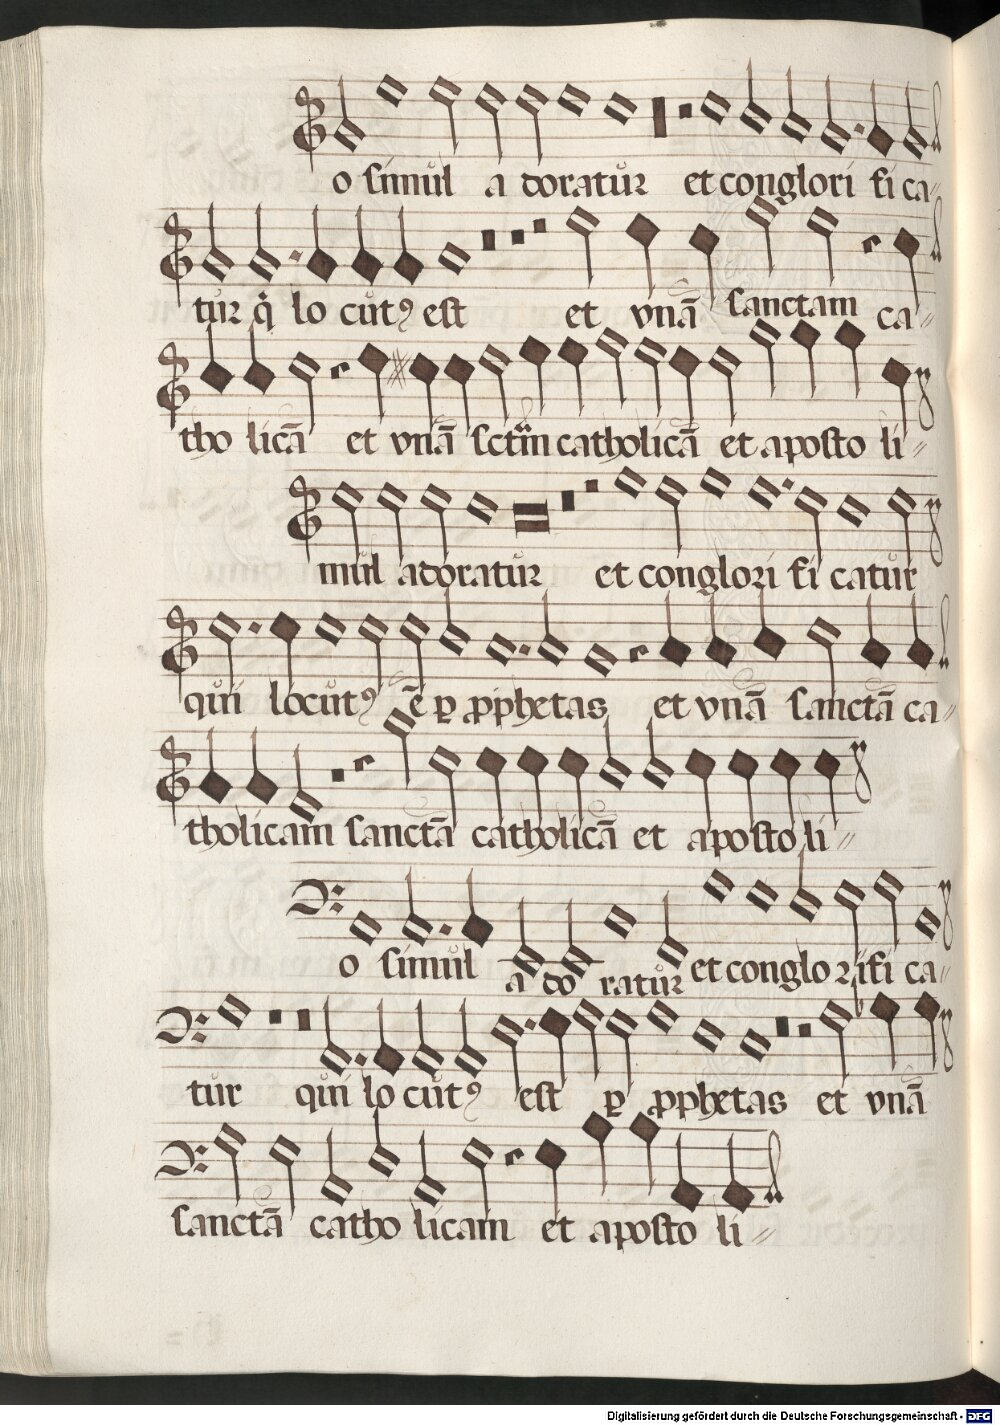 o simul a doratur et conglori fi ca„
tur q̊ lo cutꝰ est et vnā sanctam ca„
tho licā et vnā sctm̄ catholicā et aposto li„
mul adoratur et conglori fi catur
qui locutꝰ ē ꝑ ꝓphetas et vnā sanctā ca„
tholicam sanctā catholicā et aposto li„
o simul a do ratur et conglo rifi ca„
tur qui lo cutꝰ est ꝑ ꝓphetas et vnā
sanctā catho licam et aposto li„
Digitalisierung gefördert durch die Deutsche Forschungsgemeinschaft - DFG